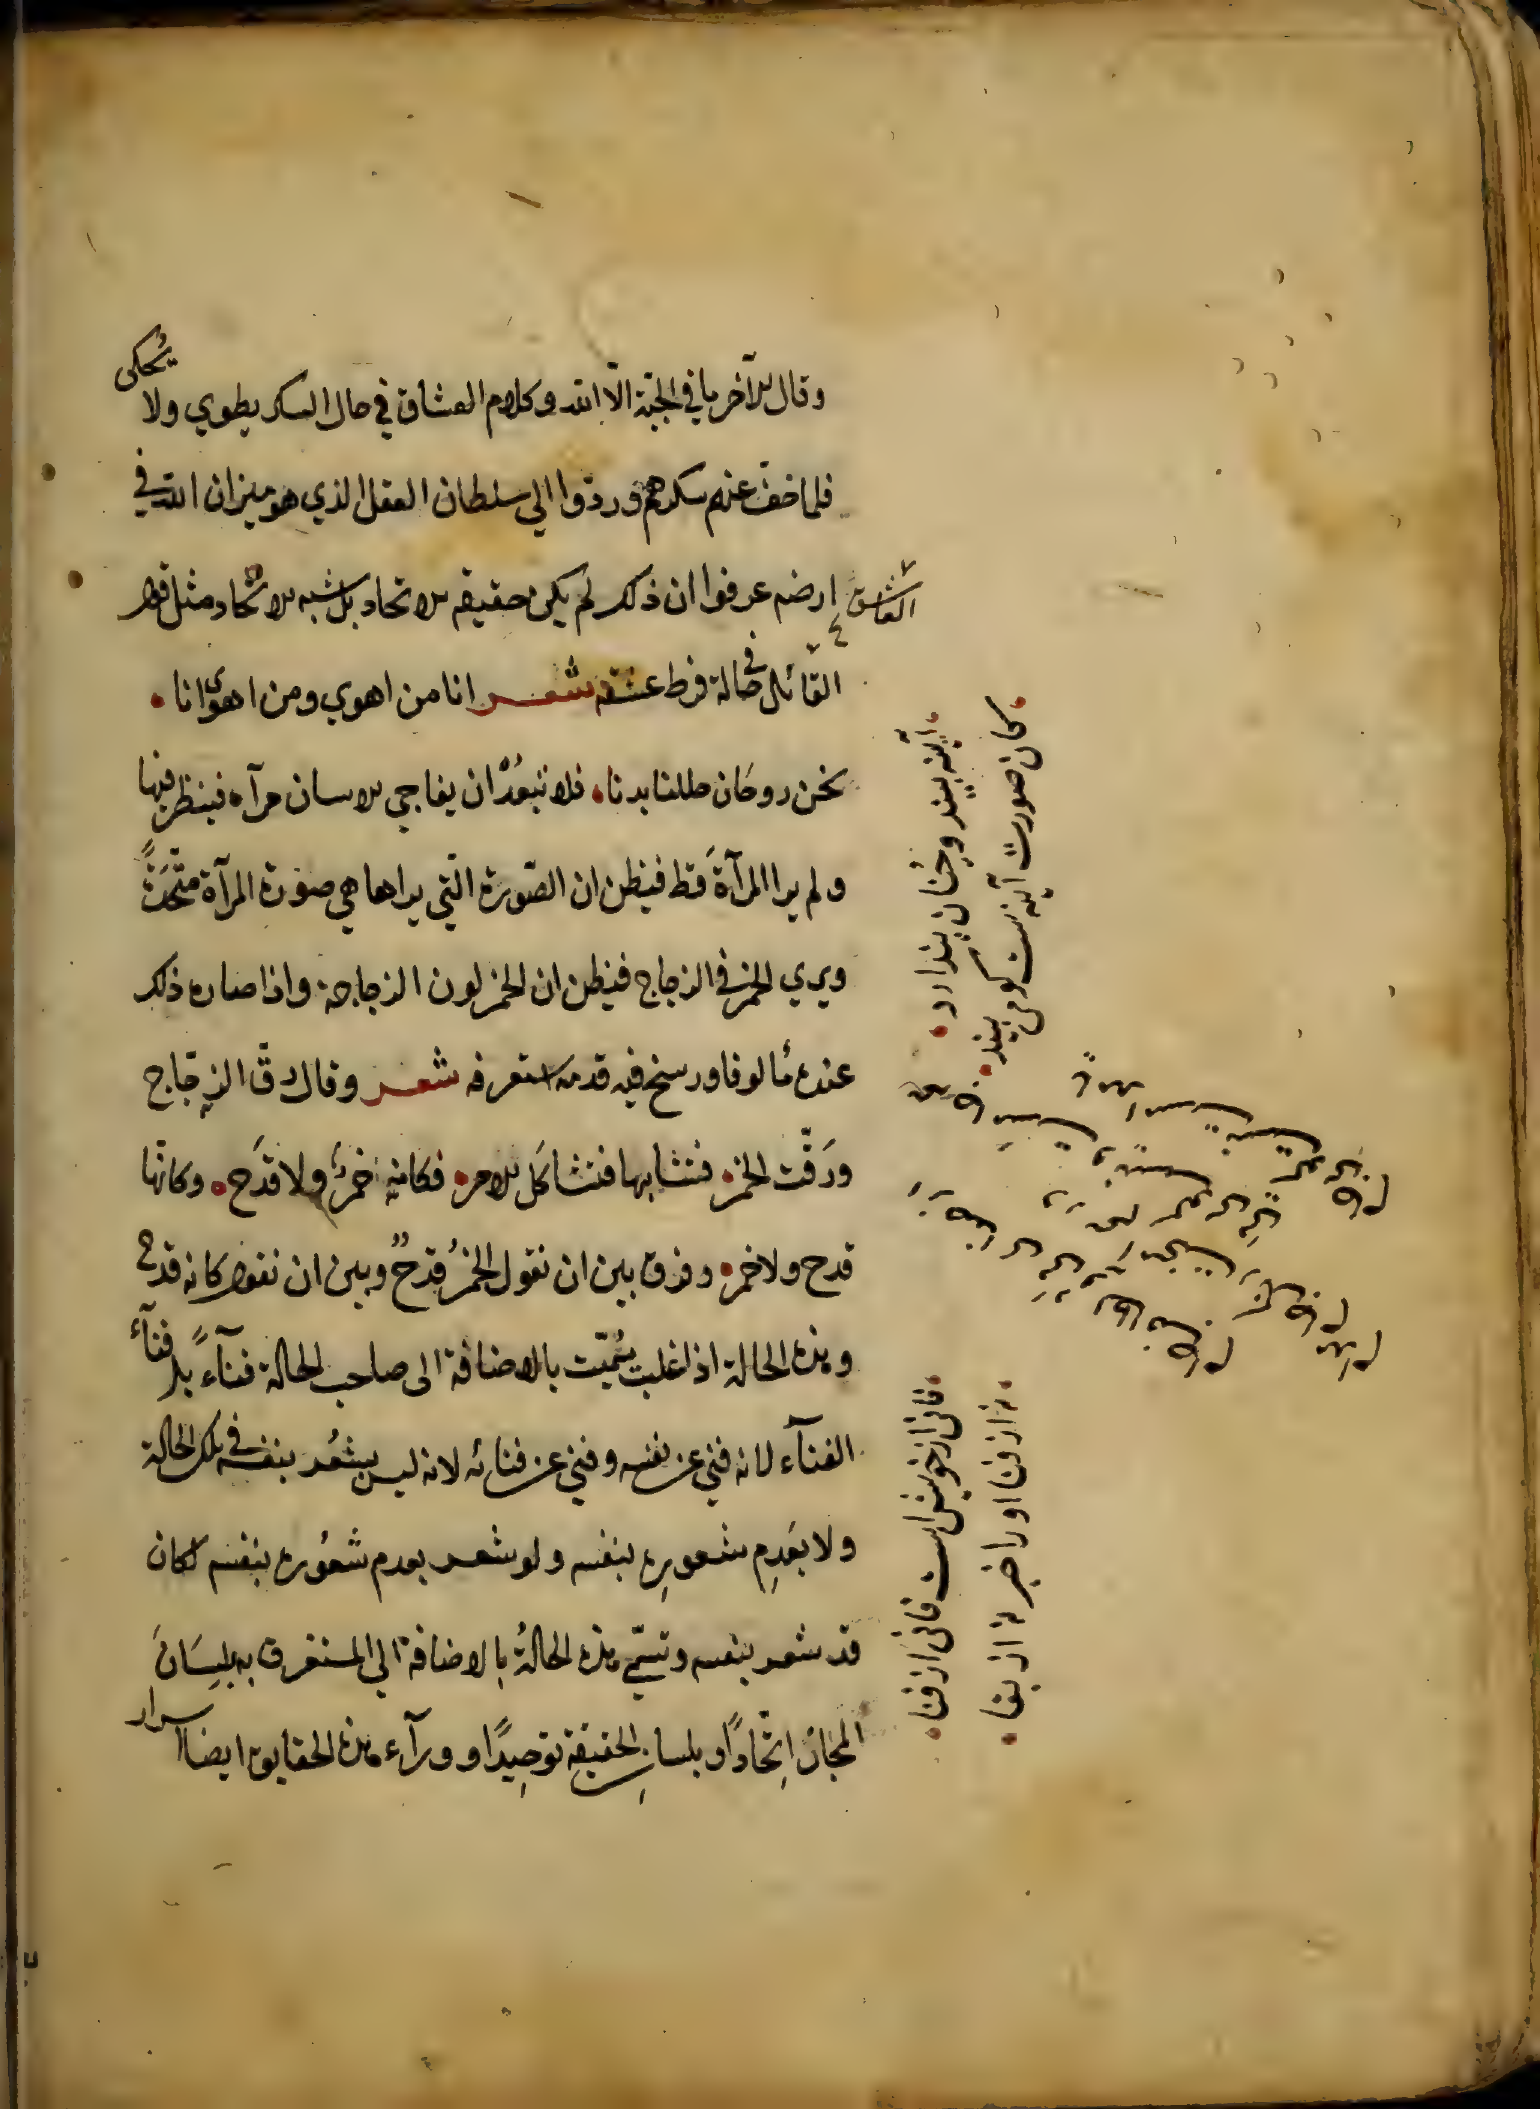 وقال الآخر ما في الجبّة الّا الله وكلام العشاق في حال السكر يطوي ولا يُحكى
فلما خفّ عنهم سكرهم وردّوا الي سلطان العقل الذي هو ميزان الله في
ارضه عرفوا ان ذلك لم يكن حقيقه الاتحاد بل شبه الاتّحاد مثل قول
العاشق
القائل في حالة فرط عشقه شعر انا من اهوي ومن اهوى انا
نحن روحَان حللنا بدنا فلا تبعُدْ ان يفاجي الانسان مرآه فينظر فيها
ولم ير المرآةَ قط فيظن ان الصّورة الّتي يراها هي صورة المرآة متّحدَةً
ويري الخمر في الزجاج فيظن ان الخمر لون الزجاجة واذا صار ذلك
عنده مألوفا ورسخ فيه قدمه استغرقه شعر وقال رقّ الزجّاج
ورَقّت الخمر فتشابها فتشاكل الامر فكانه خمرٌ ولا قدَح وكانّها
قدح ولا خمر وفرق بين ان نقول الخمرُ قدحٌ وبين ان نقول كانه قدح
وهذه الحالة اذا غلبت سُمّيت بالاضافة الى صاحب الحالة فنآءً بل فنآء
الفنآء لانه فني عن نفسه وفني عن فنائه لانه ليس يشعُر بنفسه في تلك الحالة
ولا بعَدمِ شعورِه بنفسه ولو شعر بعدم شعُوره بنفسه لكان
قد شعر بنفسه وتسمّي هذه الحالةُ بالاضافة الي المستغرق به بلِسَان
المجاز اِتّحادًا وبلسان الحقيقة توحِيدًا وورآء هذه الحقايق ايضا اسرار
آينه بيند وچنان پندارد
كان صورت آينه است كو مى بيند
فانى از خويش است فانى از فنا
نه از فنا او را خبر نه از بقا